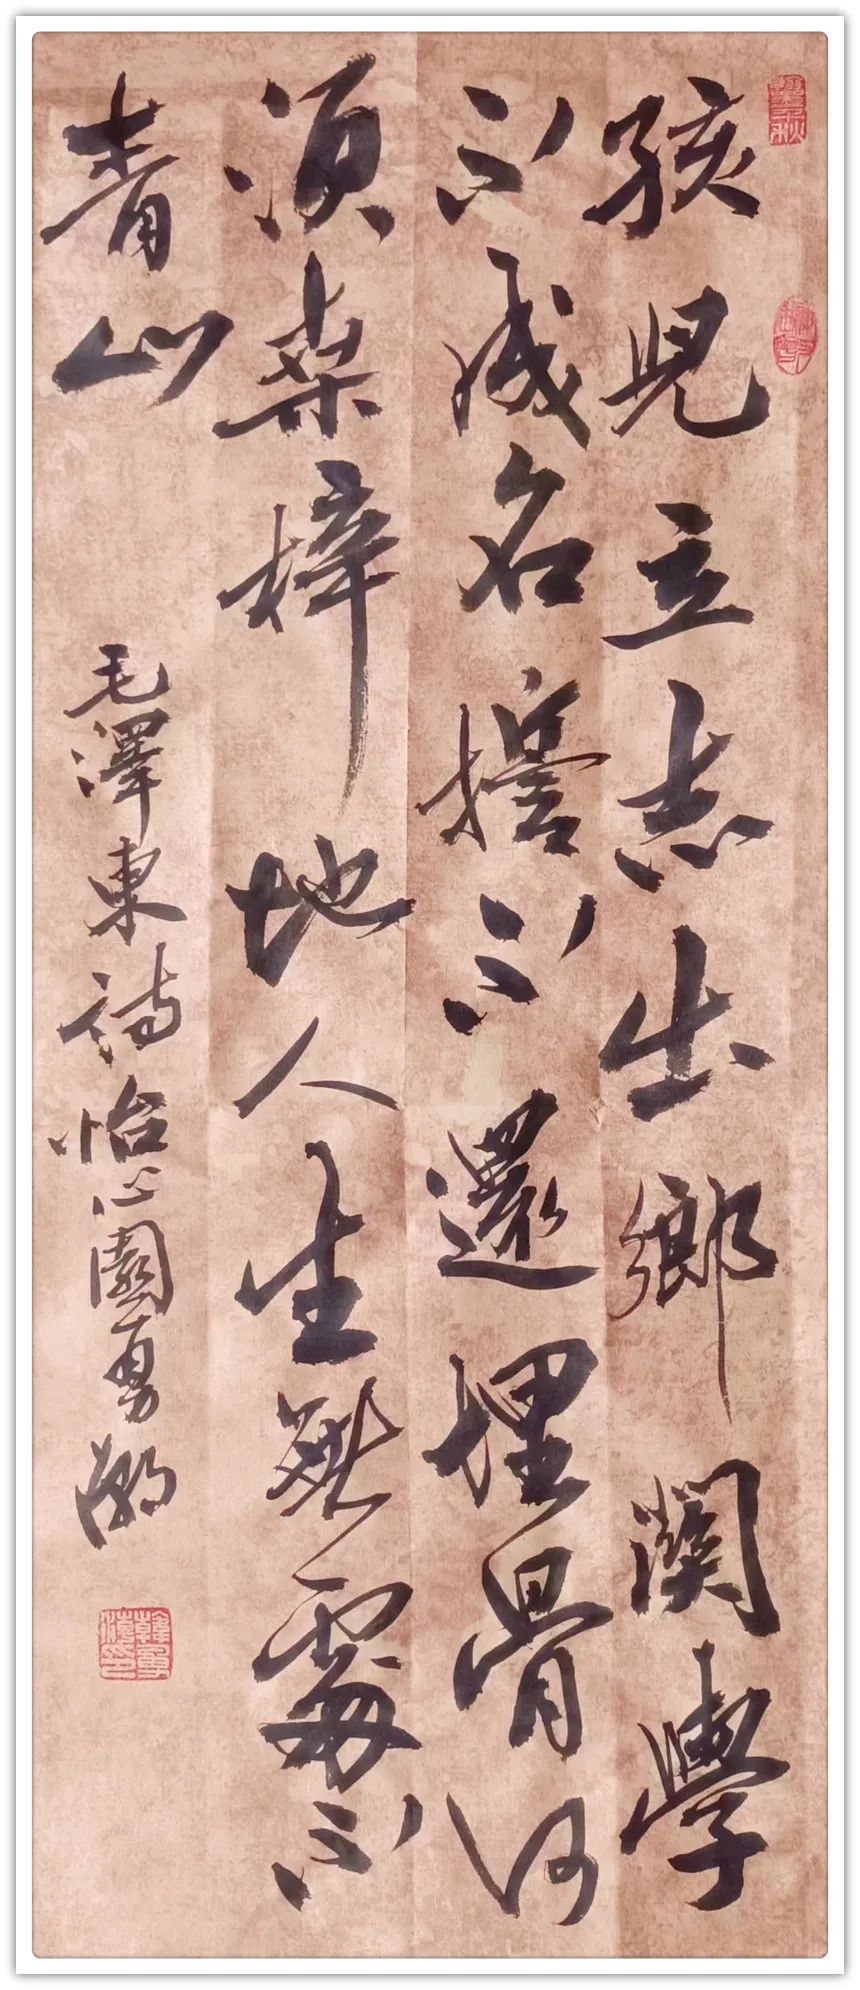 孩兒立志出鄉關學
不成名誓不還埋骨何
須桑梓地人生無處不
青山
毛澤東詩怡心園勇瀚